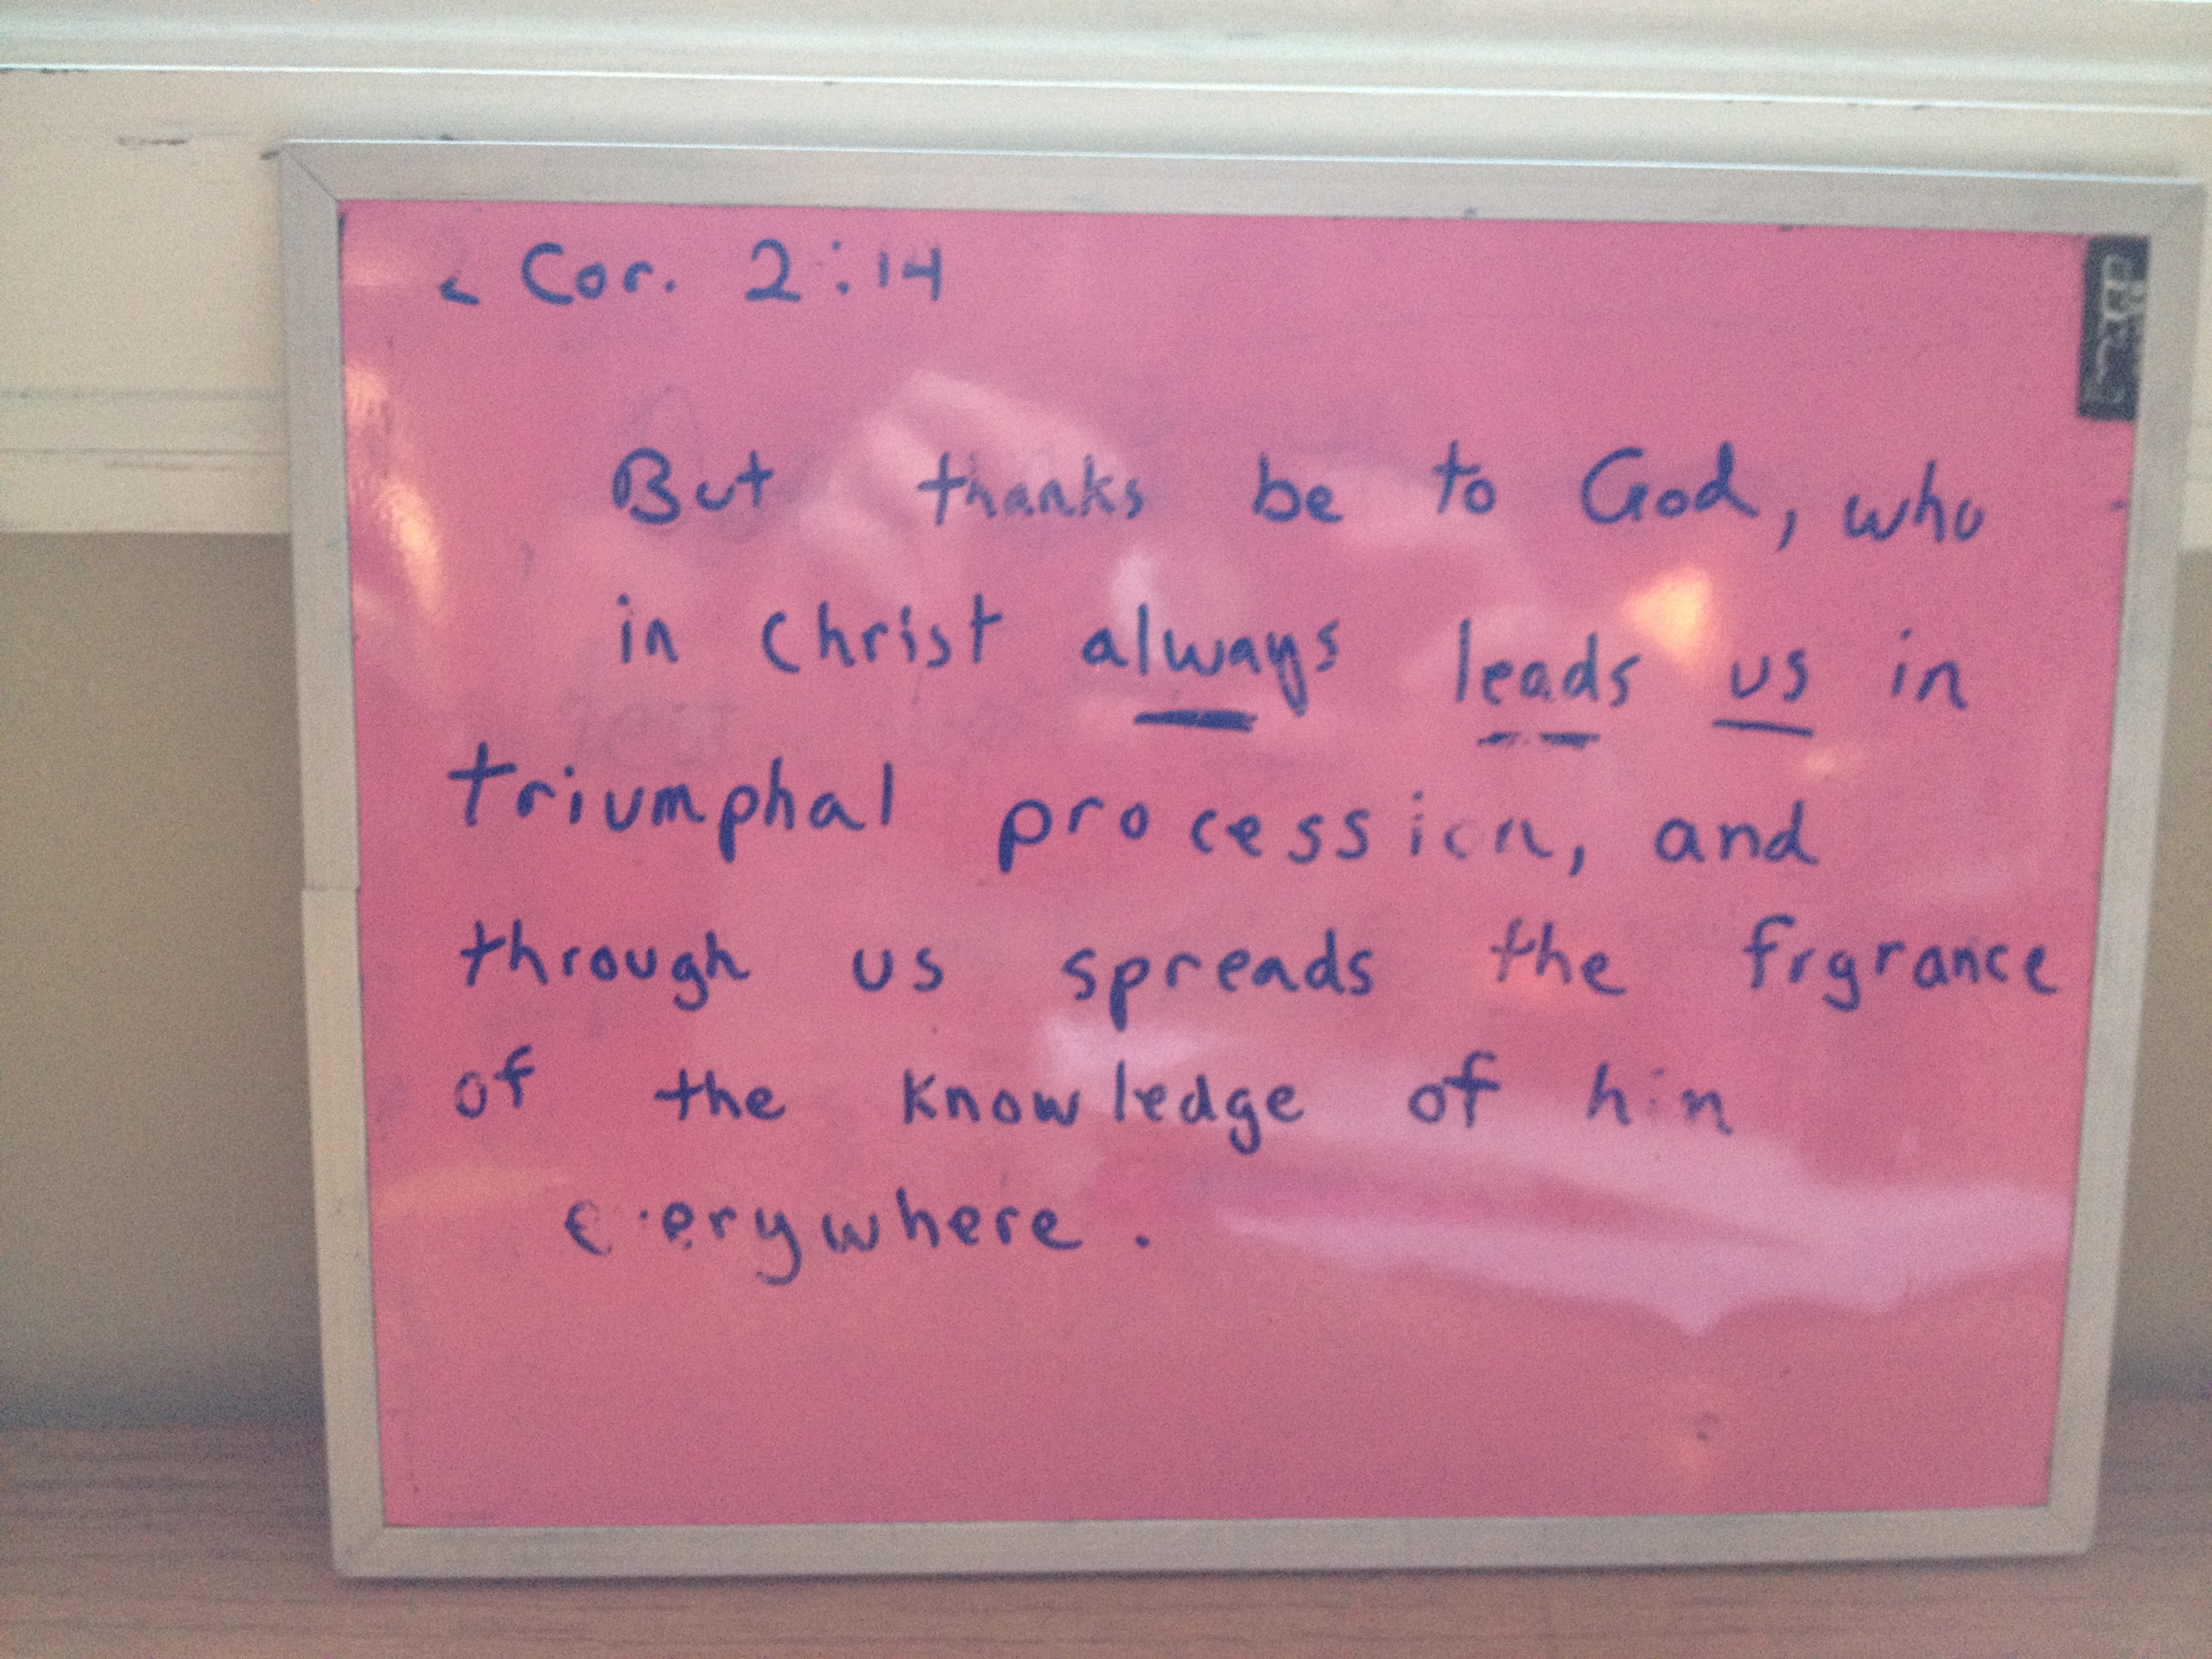 2 Cor. 2:14
But thanks be to God, who
in Christ always leads us in
triumphal procession, and
through us spreads the frgrance
of the knowledge of him
everywhere.